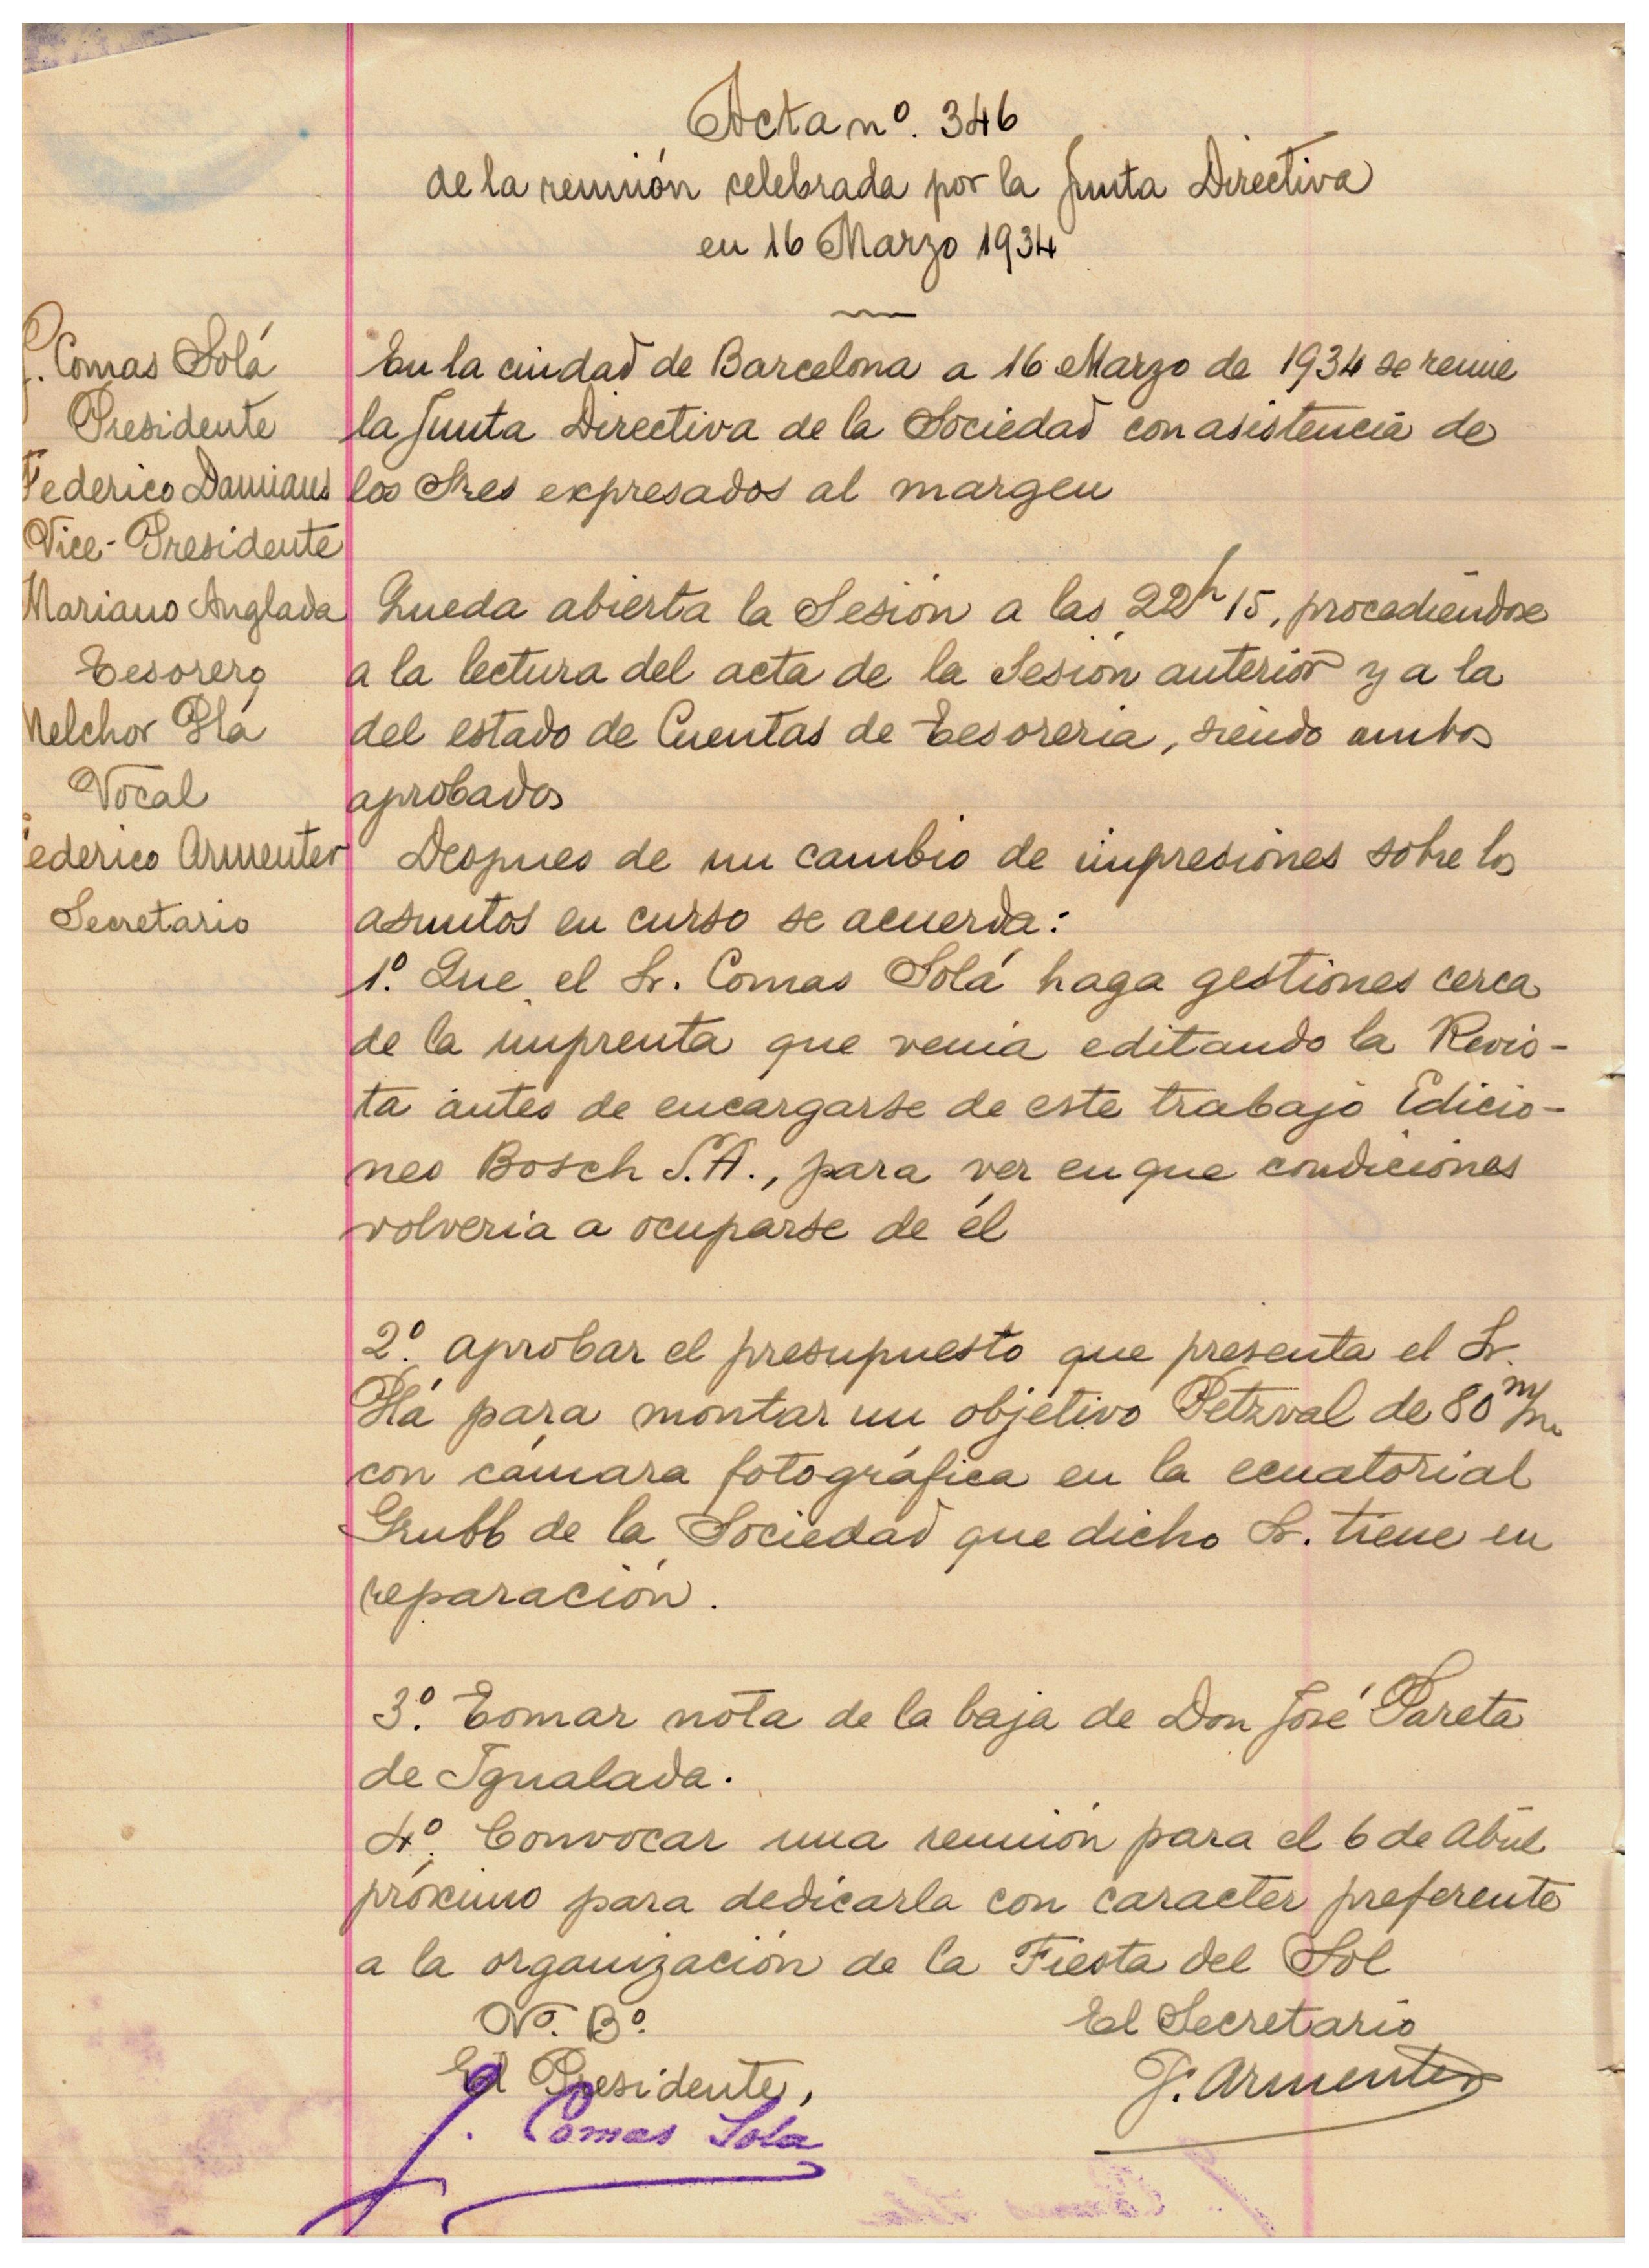 Acta nº. 346
de la reunión celebrada por la Junta Directiva
en 16 Marzo 1934
J. Comas Solá
Presidente
Federico Damians
Vice-Presidente
Mariano Anglada
Tesorero
Melchor Plá
Vocal
Federico Armenter
Secretario
En la ciudad de Barcelona a 16 Marzo de 1934 se reune
la Junta Directiva de la Sociedad con asistencia de
los Sres expresados al margen
Queda abierta la Sesión a las 22h 15, procediéndose
a la lectura del acta de la Sesión anterior y a la
del estado de Cuentas de Tesoreria, siendo ambos
aprobados
Despues de un cambio de impresiones sobre los
asuntos en curso se acuerda:
1º. Que el Sr. Comas Solá haga gestiones cerca
de la imprenta que venia editando la Revis-
ta antes de encargarse de este trabajo Edicio-
nes Bosch S.A., para ver en que condiciones
volveria a ocuparse de él
2º. aprobar el presupuesto que presenta el Sr.
Plá para montar un objetivo Petzval de 80 m/m
con cámara fotográfica en la ecuatorial
Grubb de la Sociedad que dicho Sr. tiene en
reparación.
3º. Tomar nota de la baja de Don José Pareta
de Igualada.
4º. Convocar una reunión para el 6 de Abril
próximo para dedicarla con caracter preferente
a la organización de la Fiesta del Sol
Vº. Bº.
El Presidente,
J. Comas Solá
El Secretario
F. Armenter